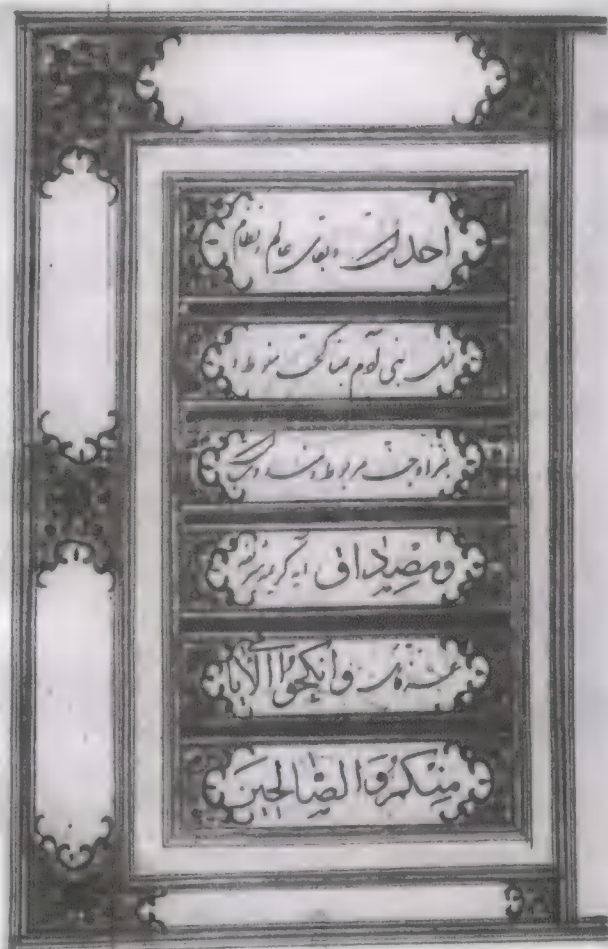 احدیت و بقای عالم و نظام
نسل بنی آدم بمناکحت منوط و
بمزاوجت مربوط و
ومصداق آیه کریمه
وانکحوا الایا
منکم والصالحین